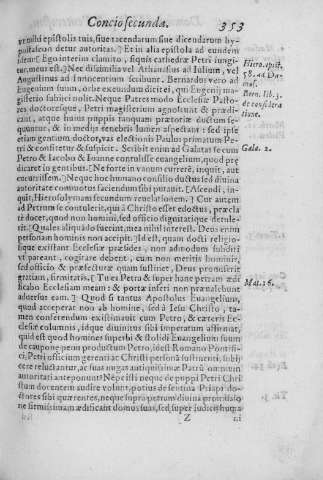 Concio secunda. 353
detur autoritas. Et in alia epistola ad eundem
idem: Ego interim clamito, siquis cathedræ Petri iungi-
tur, meus est. Nec dissimilia vel Athanasius ad Iulium, vel
Augustinus ad Innocentium scribunt. Bernardus vero ad
Eugenium suum, orbē exeundum dicit ei, qui Eugenij ma-
gisterio subijci nolit. Neque Patres modo Ecclesiæ Pasto-
res doctoresque, Petri magisterium agnoscunt & prædi-
cant, atque huius puppis tanquam prætoriæ ductum se-
quuntur, & in medijs tenebris lumen aspectant: sed ipse
etiam gentium doctor, vas electionis Paulus primatum Pe-
tri & confitetur & suspicit. Scribit enim ad Galatas se cum
Petro & Iacobo & Ioanne contulisse euangelium, quod præ
dicaret in gentibus. Ne forte in vanum currerē, inquit, aut
cucurrissem. Neque hoc humano consilio ductus sed diuina
autoritate commotus faciendum sibi putauit. Ascendi, in-
quit, Hierosolymam secundum reuelationem. Cur autem
ad Petrum se contulerit, qui à Christo esset edoctus, præcla
rè docet, quod non homini, sed officio dignitatique detule-
rit. Quales aliquādo fuerint, mea nihil interest. Deus enim
personam hominis non accipit. Id est, quam docti religio-
sique existant Ecclesiæ præsides, non admodum subditi
vt pareant, cogitare debent, cum non meritis hominis,
sed officio & præfecturæ quam sustinet, Deus promiserit
gratiam, firmitatē. Tu es Petrus & super hanc petram ædi
ficabo Ecclesiam meam: & portæ inferi non præualebunt
aduersus eam. Quod si tantus Apostolus Euangelium,
quod acceperat non ab homine, sed à Iesu Christo, ta-
men conferendum existimauit cum Petro, & cæteris Ec-
clesiæ columnis, idque diuinitus sibi imperatum affirmat,
quid est quod homines superbi & stolidi Euangelium suum
de caupone penu productum Petro, id est Romano Pontifi-
ci, Petri officium gerenti & Christi personā sustinenti, subij-
cere reluctantur, ac suas nugas antiquissimæ Patrū omnium
autoritati anteponunt? Nēpe isti neque de puppi Petri Chri
stum docentem audire volunt, potius de sentina Priapi do-
ctores sibi quærentes, neque supra petram diuina promissio
ne firmissimam ædificant domus suas, sed super
Z
Hiero. epist.
58. ad Da-
mas.
Bern. lib. 3.
de considera
tione.
Gala. 2.
Mat. 16.